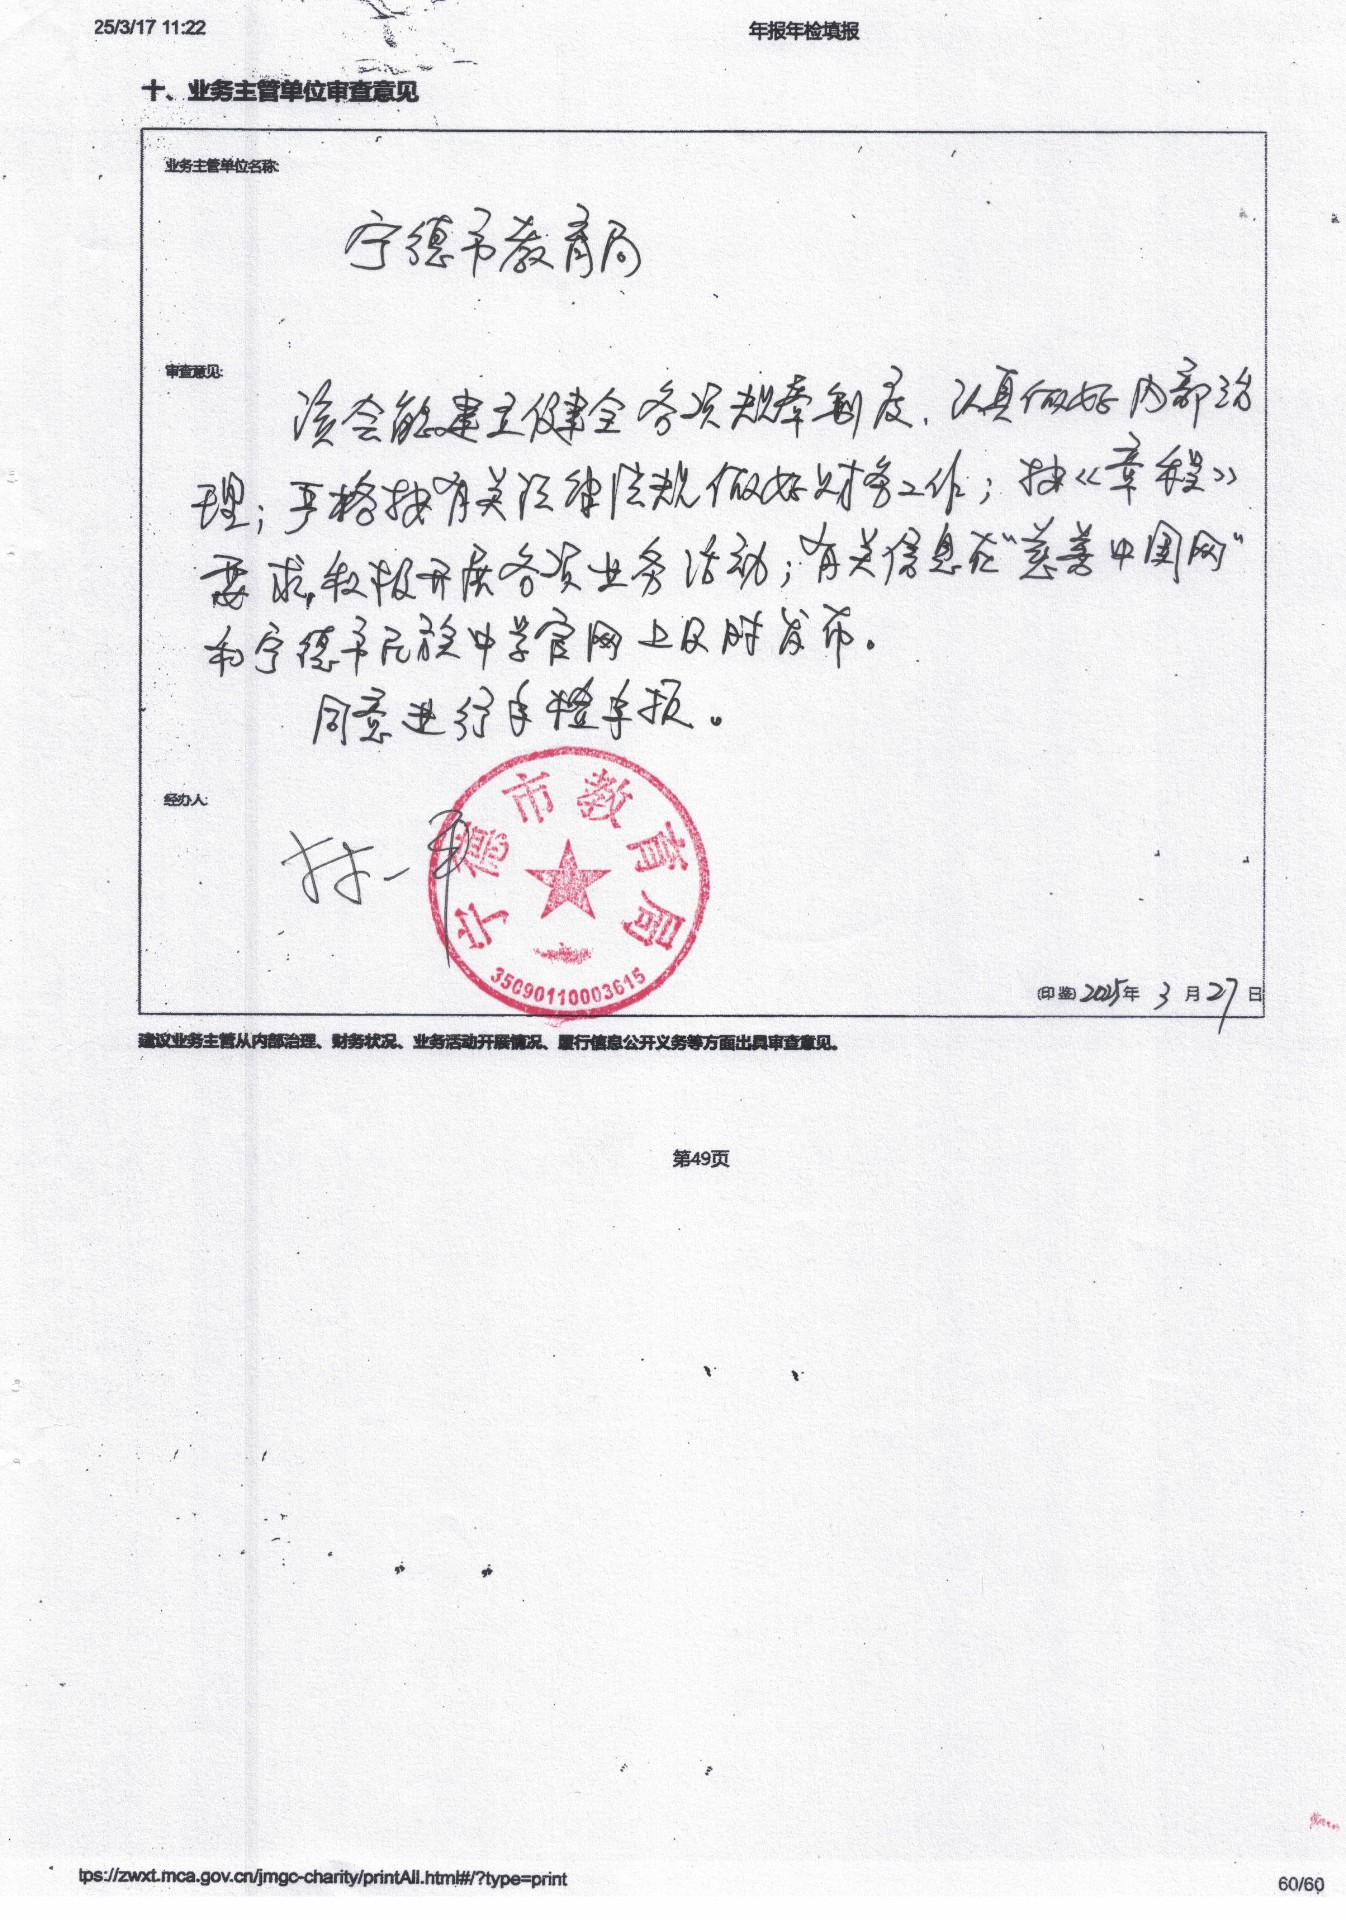 25/3/17 11:22
年报年检填报
十、业务主管单位审查意见
业务主管单位名称:
宁德市教育局
审查意见:
该会能建立健全各项规章制度,认真做好内部治
理;严格按有关法律法规做好财务工作;按《章程》
要求,积极开展各项业务活动;有关信息在“慈善中国网”
和宁德市民族中学官网上及时发布。
同意进行年检年报。
经办人:
林一
宁德市教育局
35090110003615
(印鉴) 2025年 3 月 27 日
建议业务主管从内部治理、财务状况、业务活动开展情况、履行信息公开义务等方面出具审查意见。
第49页
tps://zwxt.mca.gov.cn/jmgc-charity/printAll.html#/?type=print
60/60